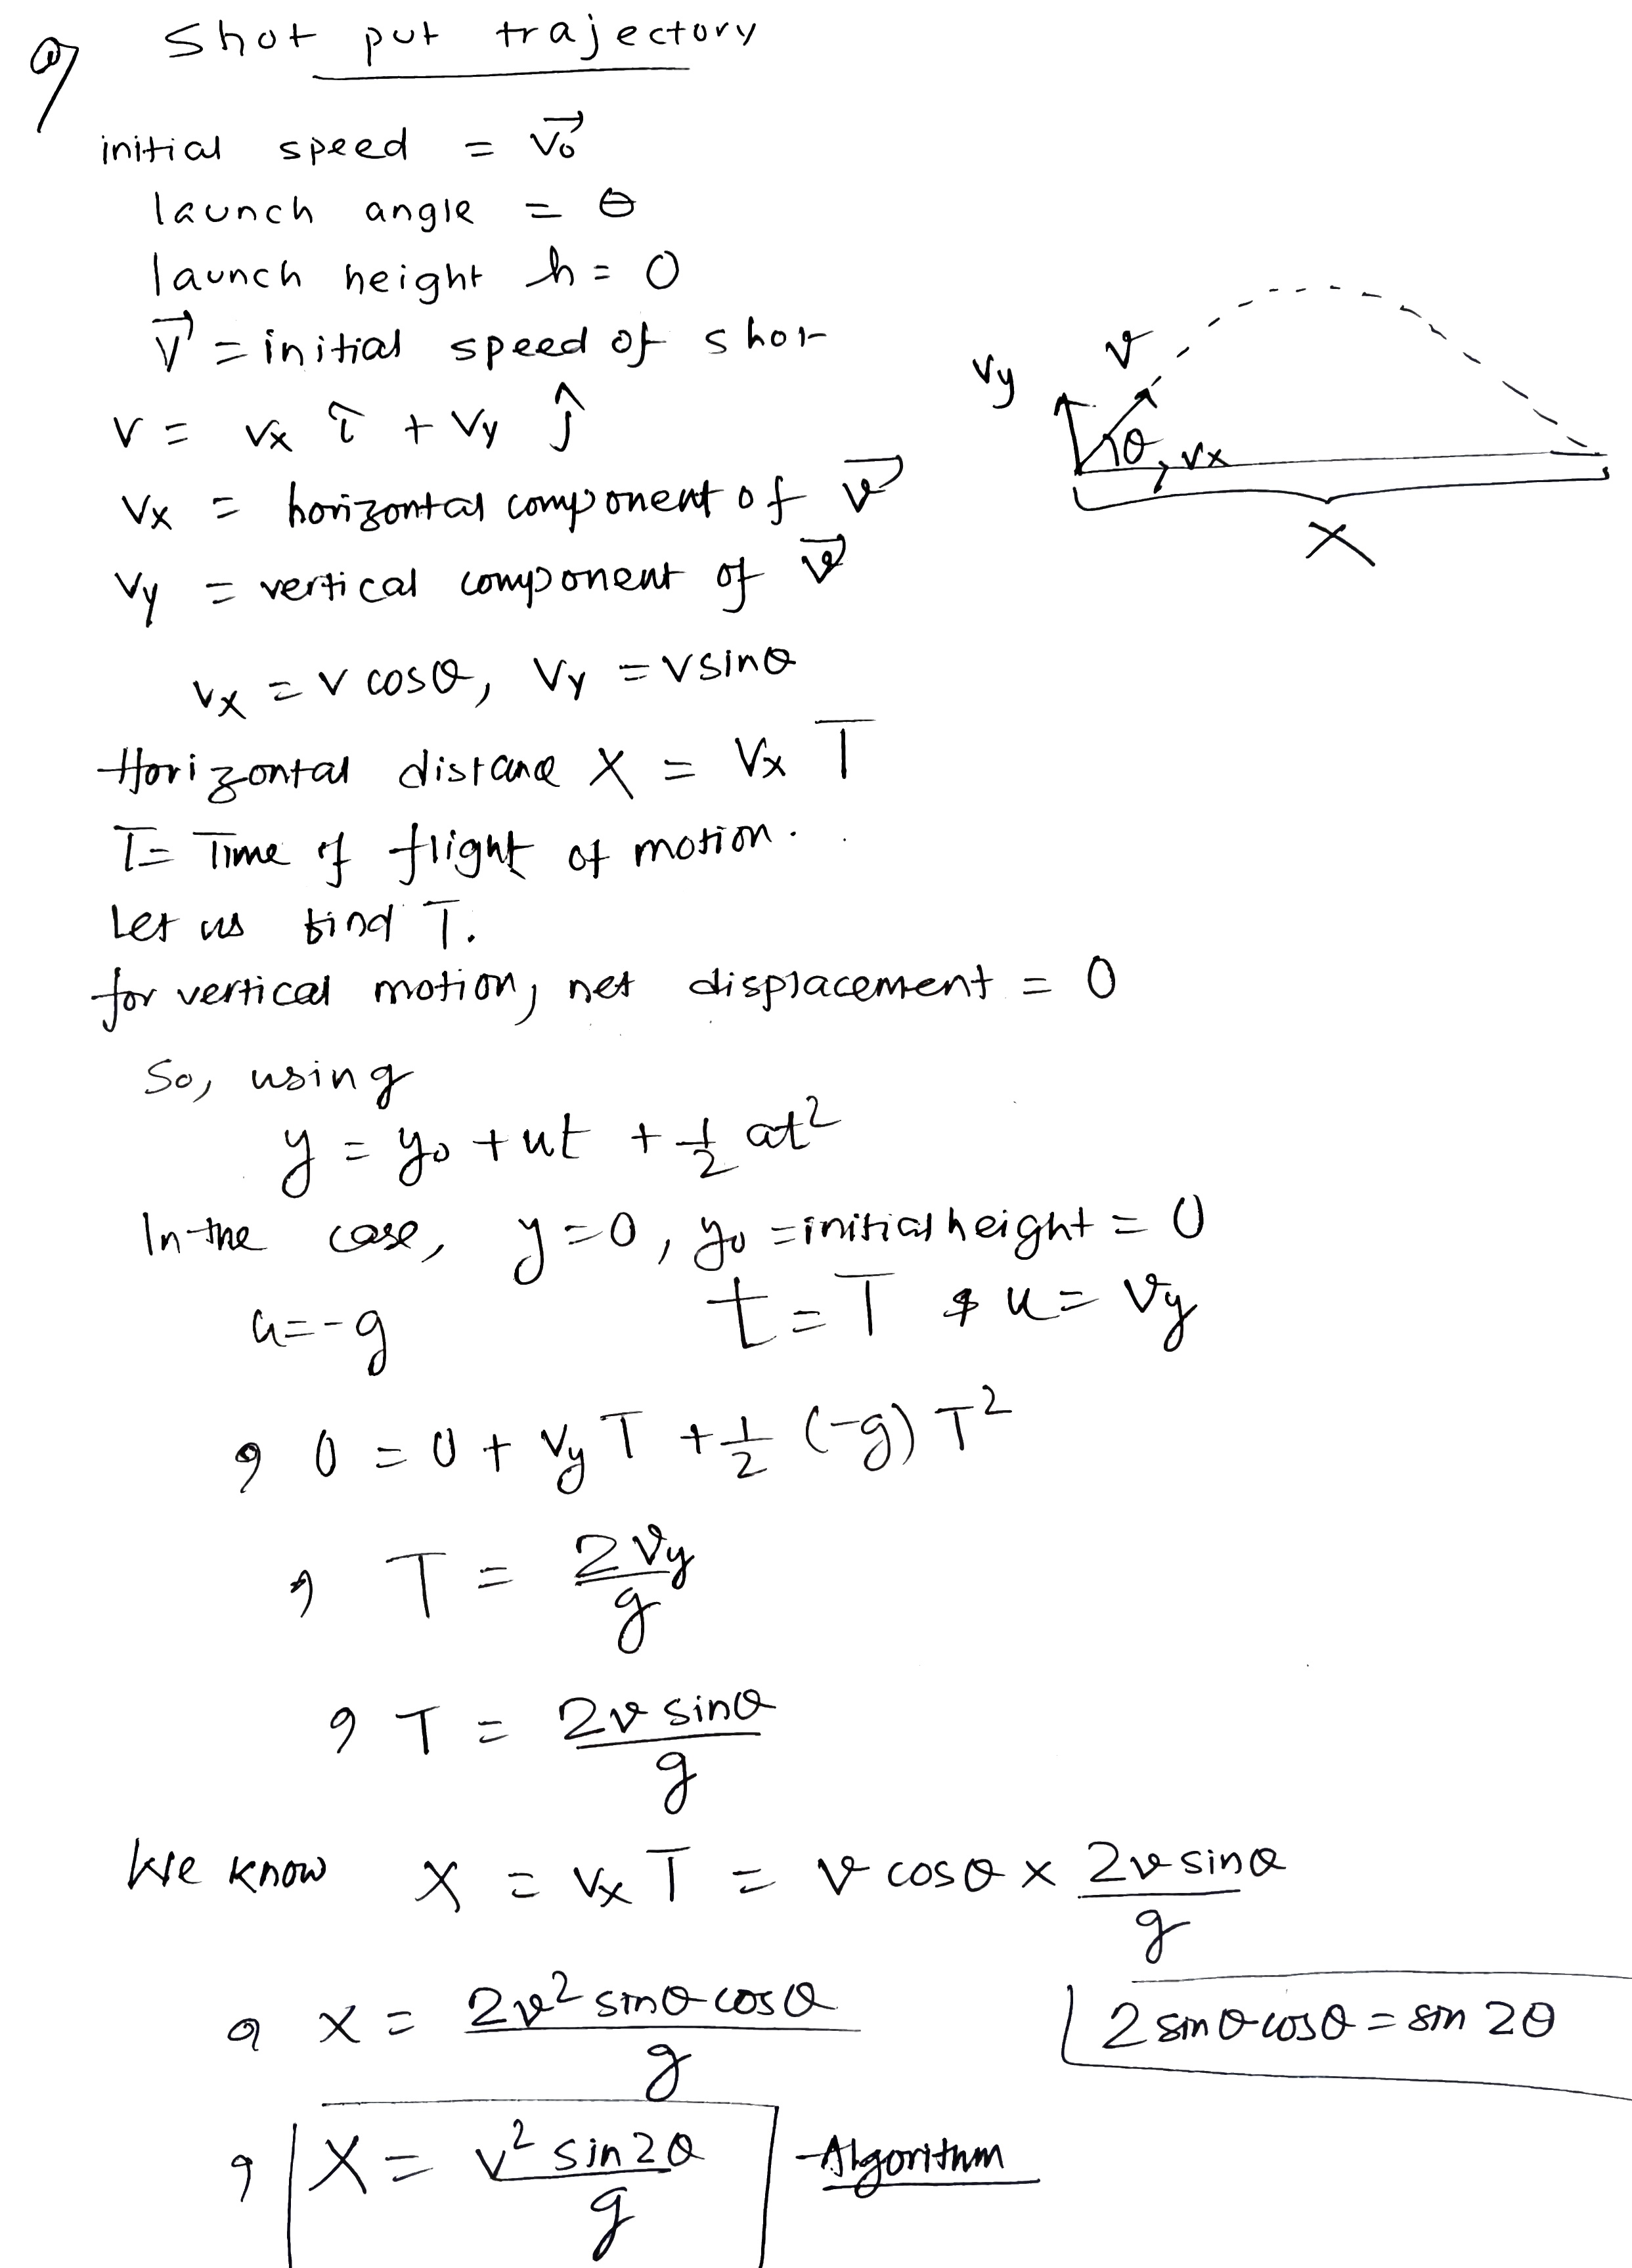 a) Shot put trajectory
initial speed = v₀⃗
launch angle = θ
launch height h = 0
V⃗ = initial speed of shot
v = vx î + vy ĵ
Vx = horizontal component of v⃗
Vy = vertical component of v⃗
vy
v
θ
vx
X
vx = v cosθ, Vy = v sinθ
Horizontal distance X = Vx T
T = Time of flight of motion.
Let us find T.
for vertical motion, net displacement = 0
So, using
y = y₀ + ut + 1/2 at²
In the case, y = 0, y₀ = initial height = 0
a = -g t = T & u = vy
0 = 0 + vy T + 1/2 (-g) T²
T = 2vy/g
T = 2v sinθ/g
We know X = vx T = v cosθ x 2v sinθ/g
x = 2v² sinθ cosθ/g
2 sinθ cosθ = sin 2θ
X = v² sin 2θ/g Algorithm